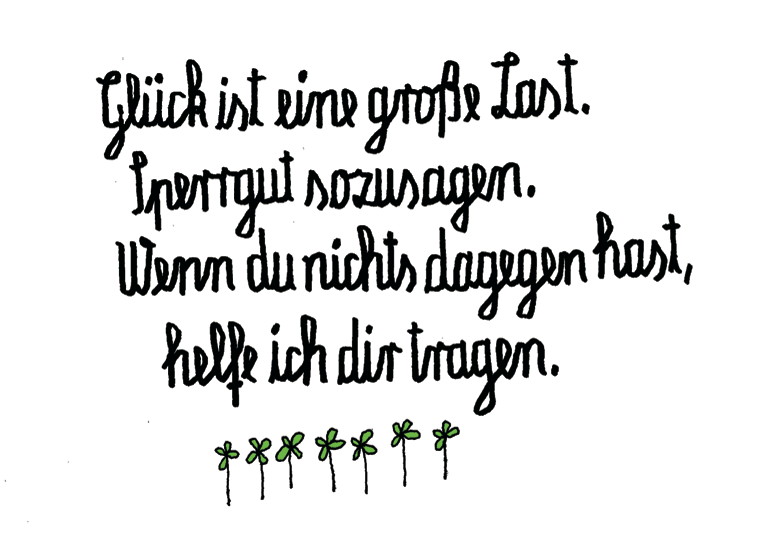 Glück ist eine große Last.
Sperrgut sozusagen.
Wenn du nichts dagegen hast,
helfe ich dir tragen.